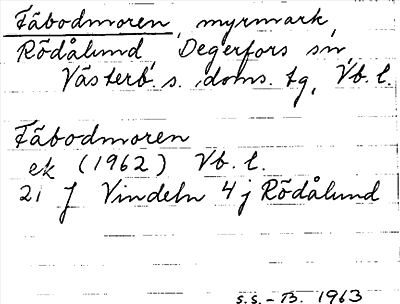 Fäbodmoren, myrmark,
Rödålund Degerfors sn,
Västerb. s. doms. tg, Vb. l.
Fäbodmoren
ek (1962) Vb. l.
21 J Vindeln 4 j Rödålund
S.S. - B. 1963